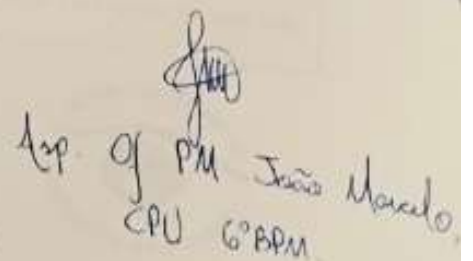 Asp Of PM João Marcelo
CPU 6ºBPM